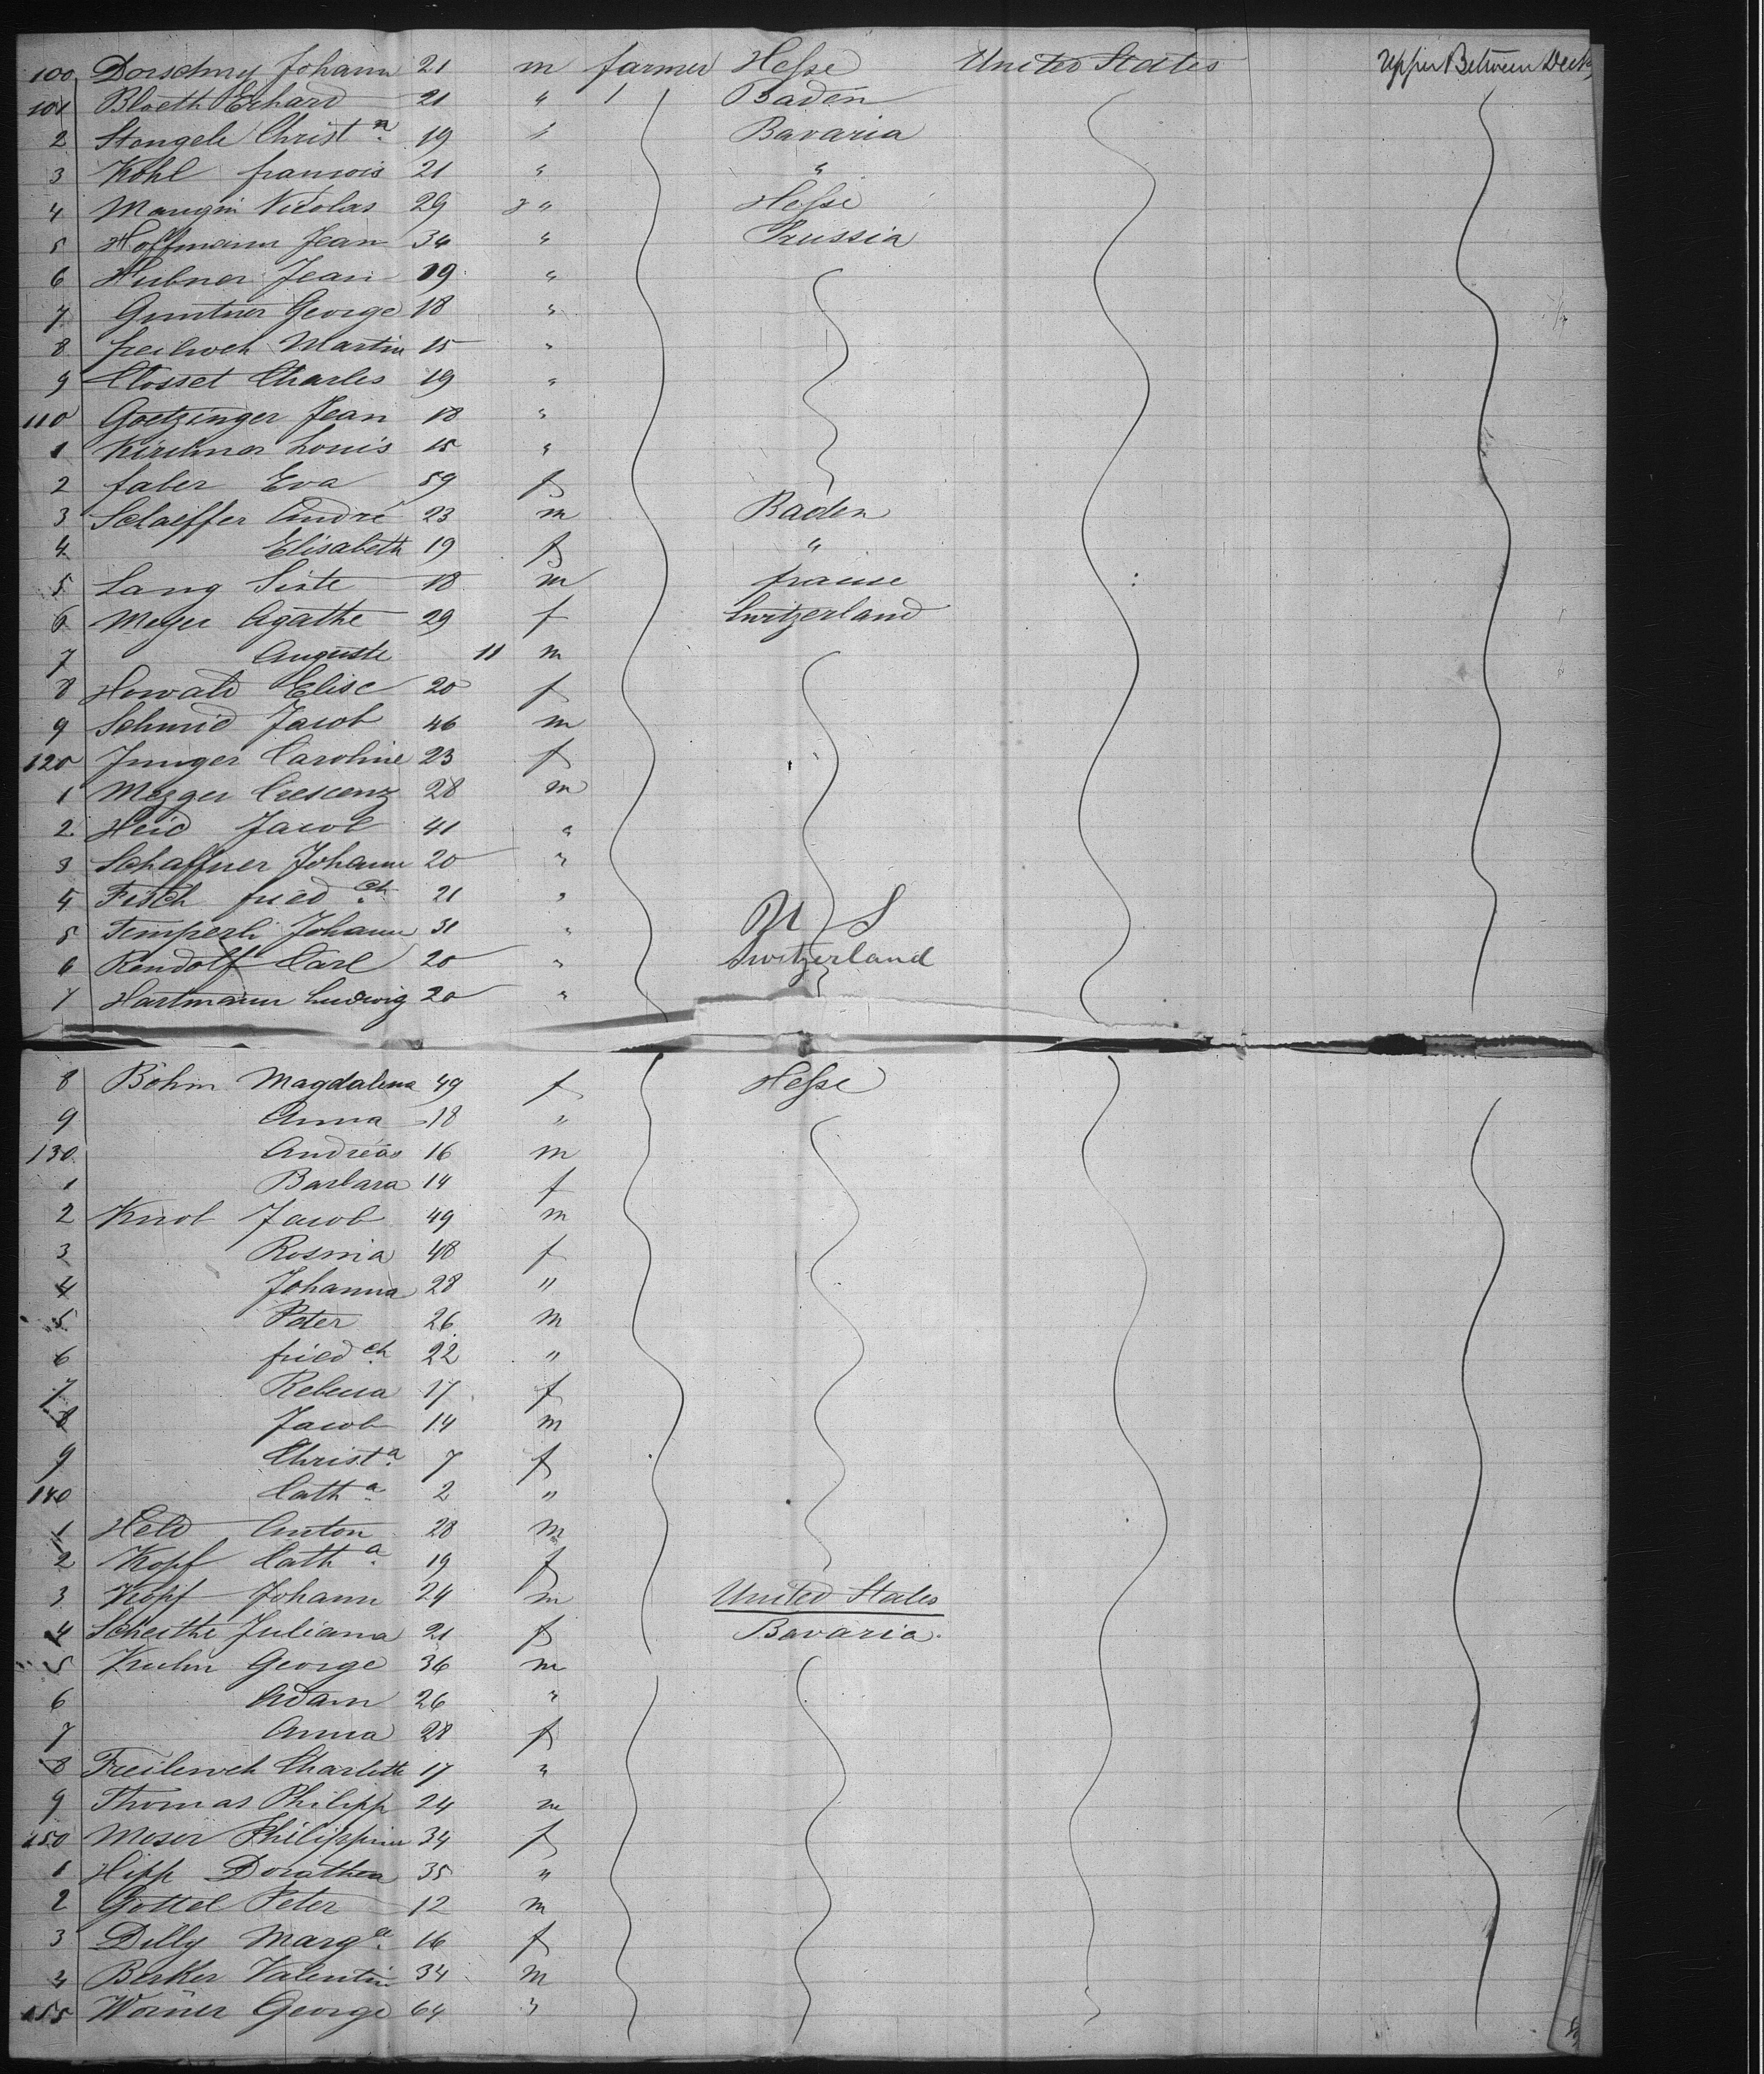 100 Dorschmy Johann 21 m farmer Hesse United States Upper Between Decks
101 Bloeth Erhard 21 " Baden
2 Stongele Christn 19 " Bavaria
3 Kohl francois 21 " "
4 Mangin Nicolas 29 " Hesse
5 Hoffmann Jean 34 " Prussia
6 Hubner Jean 19 "
7 Guntner George 18 "
8 freilweh Martin 15 "
9 Closset Charles 19 "
110 Goetzinger Jean 18 "
1 Kirchner Louis 15 "
2 faber Eva 59 f
3 Schaeffer André 23 m Baden
4 Elisabeth 19 f "
5 Lang Sixte 18 m france
6 Meyer Agathe 29 f Switzerland
7 Auguste 11 m
8 Howald Elise 20 f
9 Schmid Jacob 46 m
120 Junger Caroline 23 f
1 Mezger Crescenz 28 m
2 Heid Jacob 41 "
3 Schaffner Johann 20 "
4 Fisch friedch 21 "
5 Temperli Johann 31 " U S
6 Rendolf Carl 20 " Switzerland
7 Hartmann Ludwig 20 "
8 Böhm Magdalena 49 f Hesse
9 Anna 18 "
130 Andreas 16 m
1 Barbara 14 f
2 Knob Jacob 49 m
3 Rosina 48 f
4 Johanna 28 "
5 Peter 26 m
6 friedch 22 "
7 Rebecca 17 f
8 Jacob 14 m
9 Christa 7 f
140 Catha 2 "
1 Held Anton 28 m
2 Kopf Catha 19 f
3 Kopf Johann 24 m United States
4 Scheithe Juliana 21 f Bavaria
5 Kuhn George 36 m
6 Adam 26 "
7 Anna 28 f
8 Freilerweh Charlotte 17 "
9 Thomas Philipp 24 m
150 Moser Philippine 34 f
1 Hipp Dorathea 35 "
2 Gottel Peter 12 m
3 Dilly Marga 16 f
4 Berker Valentin 34 m
155 Worner George 64 "